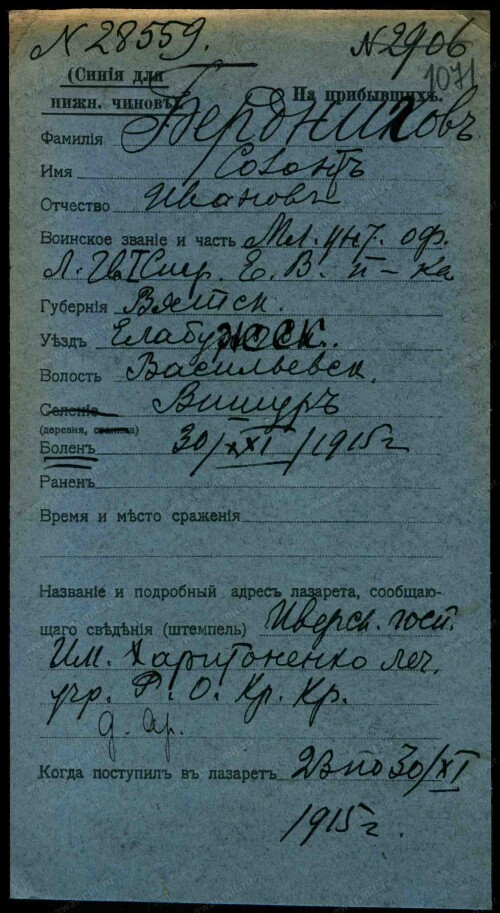 N 28559. N 2906
1071
(Синія для
нижн. чиновъ) На прибывшихъ.
Фамилія Бердниковъ
Имя Созонтъ
Отчество Ивановъ
Воинское званіе и часть Мл. унт. оф.
Л. Гв. I Стр. Е. В. п-ка
Губернія Вятск.
Уѣздъ Елабужск.
Волость Васильевск.
Селеніе Вишуръ
(деревня, станица)
Боленъ 30/XI/1915 г
Раненъ
Время и мѣсто сраженія
Названіе и подробный адресъ лазарета, сообщаю-
щаго свѣдѣнія (штемпель) Иверск. госп.
Им. Харитоненко леч.
учр. Р. О. Кр. Кр.
д. ар.
Когда поступилъ въ лазаретъ 23 по 30/XI
1915 г.